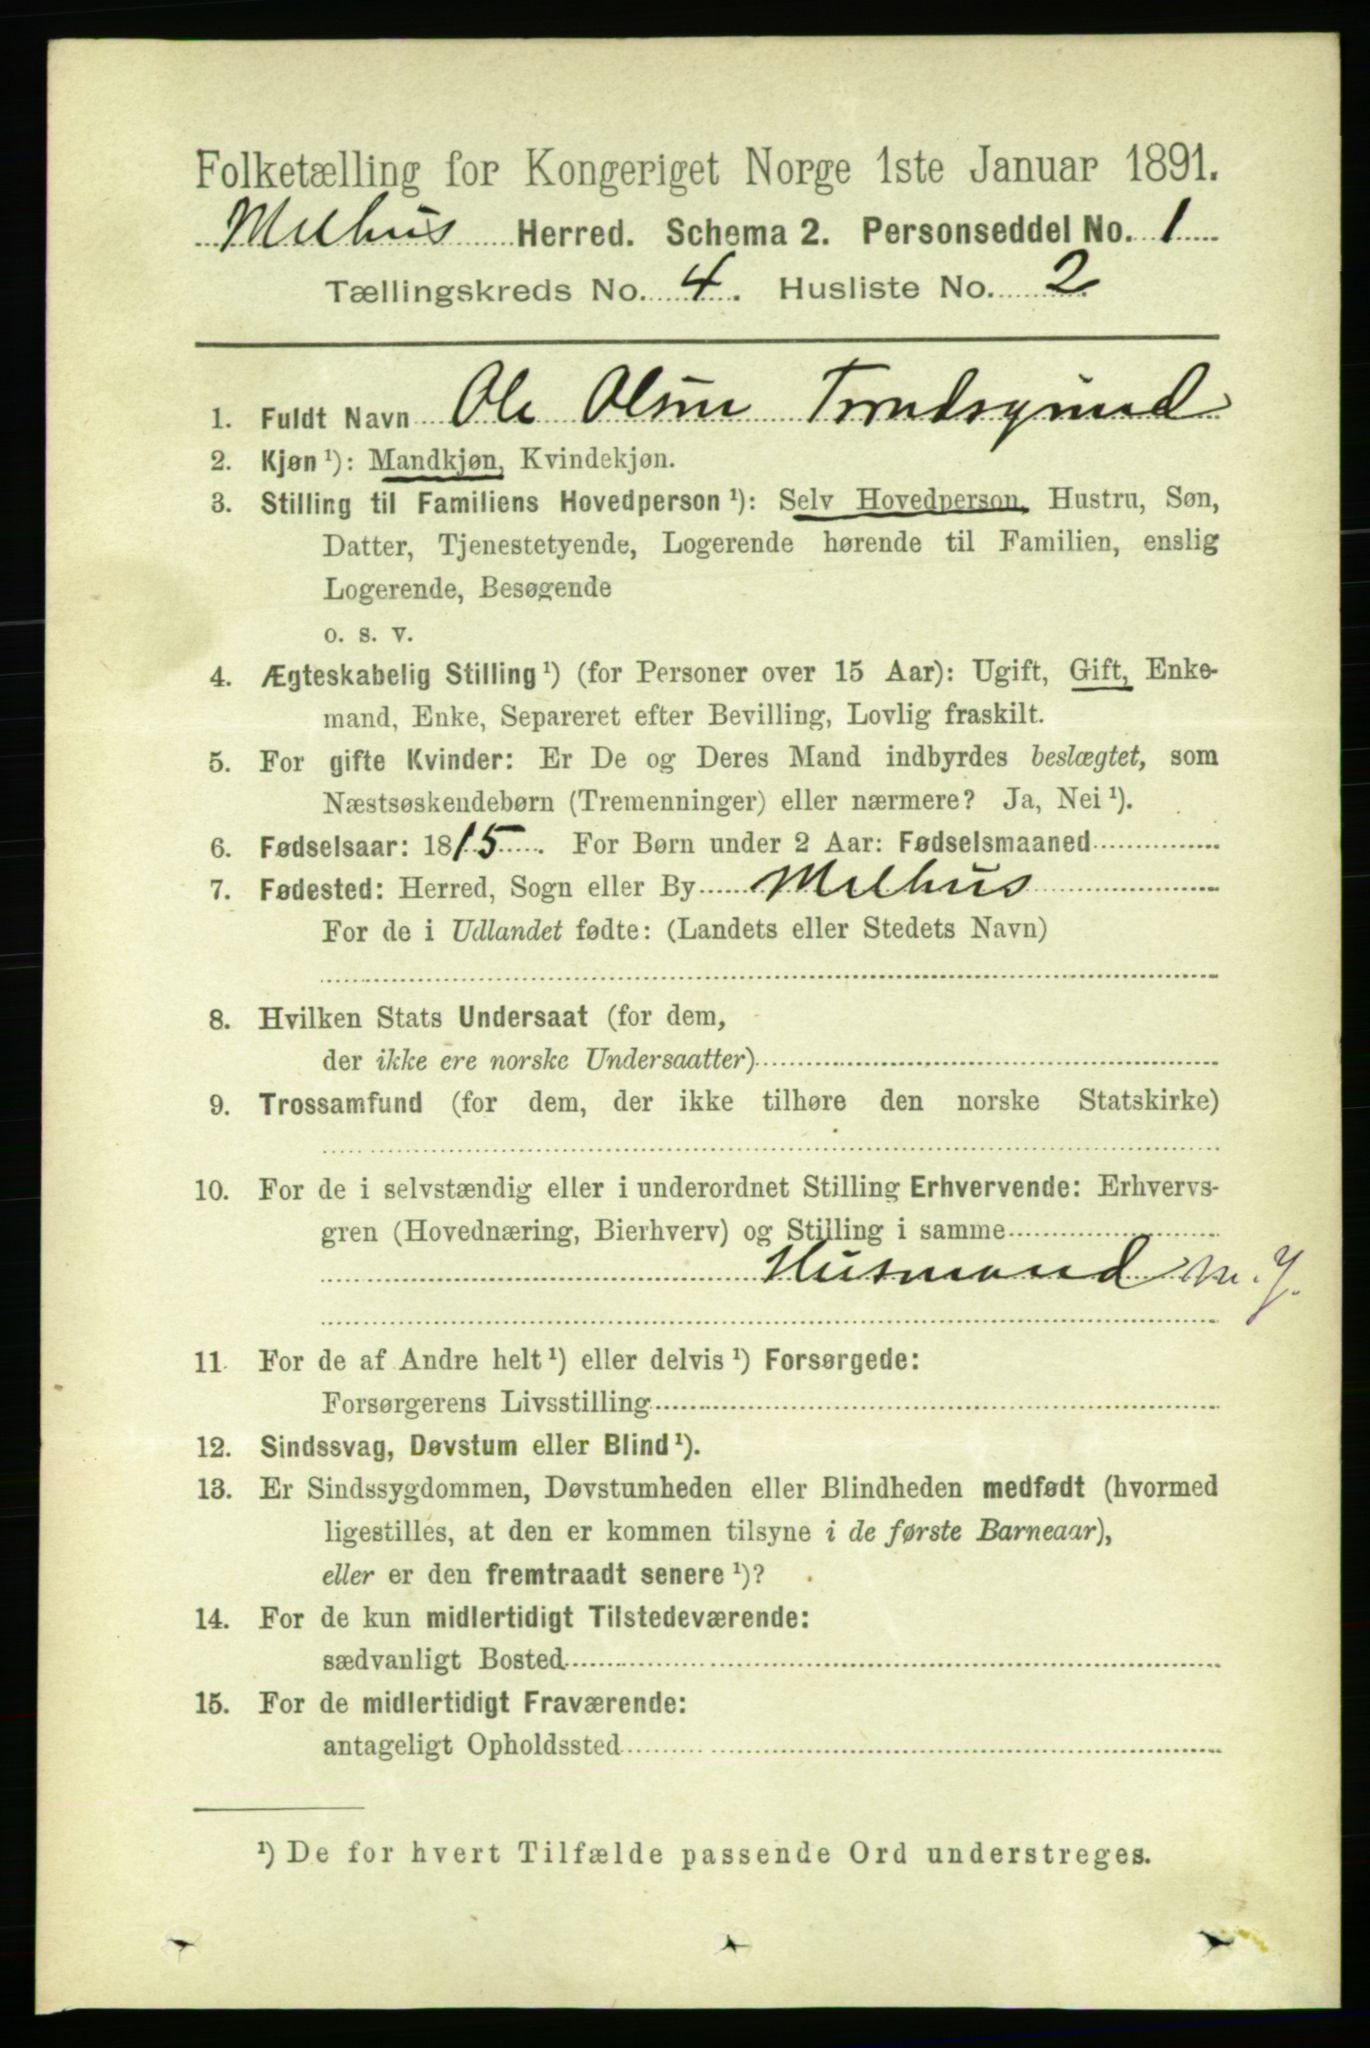 Folketælling for Kongeriget Norge 1ste Januar 1891.
Melhus Herred. Schema 2. Personseddel No. 1
Tællingskreds No. 4. Husliste No. 2
1. Fuldt Navn Ole Olsen
2. Kjøn ¹): Mandkjøn, Kvindekjøn.
3. Stilling til Familiens Hovedperson ¹): Selv Hovedperson, Hustru, Søn,
Datter, Tjenestetyende, Logerende hørende til Familien, enslig
Logerende, Besøgende
o. s. v.
4. Ægteskabelig Stilling ¹) (for Personer over 15 Aar): Ugift, Gift, Enke-
mand, Enke, Separeret efter Bevilling, Lovlig fraskilt.
5. For gifte Kvinder: Er De og Deres Mand indbyrdes beslægtet, som
Næstsøskendebørn (Tremenninger) eller nærmere? Ja, Nei ¹).
6. Fødselsaar: 1815. For Børn under 2 Aar: Fødselsmaaned
7. Fødested: Herred, Sogn eller By Melhus
For de i Udlandet fødte: (Landets eller Stedets Navn)
8. Hvilken Stats Undersaat (for dem,
der ikke ere norske Undersaatter)
9. Trossamfund (for dem, der ikke tilhøre den norske Statskirke)
10. For de i selvstændig eller i underordnet Stilling Erhvervende: Erhvervs-
gren (Hovednæring, Bierhverv) og Stilling i samme
Husmand m. J.
11. For de af Andre helt ¹) eller delvis ¹) Forsørgede:
Forsørgerens Livsstilling
12. Sindssvag, Døvstum eller Blind ¹).
13. Er Sindssygdommen, Døvstumheden eller Blindheden medfødt (hvormed
ligestilles, at den er kommen tilsyne i de første Barneaar),
eller er den fremtraadt senere ¹)?
14. For de kun midlertidigt Tilstedeværende:
sædvanligt Bosted
15. For de midlertidigt Fraværende:
antageligt Opholdssted
¹) De for hvert Tilfælde passende Ord understreges.